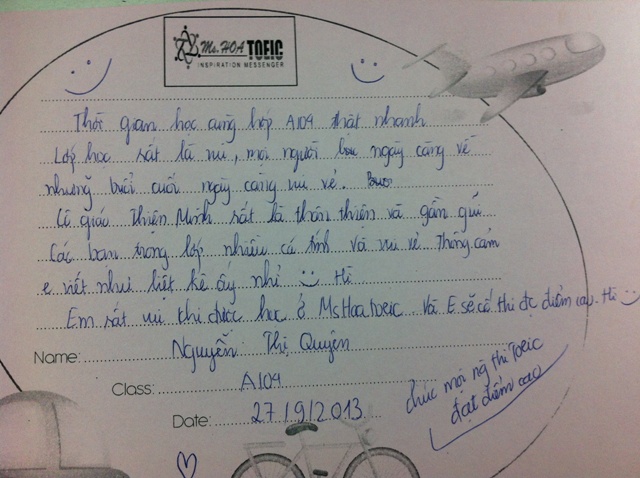 Ms. HOA TOEIC
INSPIRATION MESSENGER
Thời gian học cùng lớp A109 thật nhanh
Lớp học rất là vui, mọi người ngày càng về
những buổi cuối ngày càng vui vẻ.
Cô giáo Thiện Minh rất là thân thiện và gần gũi
Các bạn trong lớp nhiều cá tính và vui vẻ. Thông cảm
e viết như liệt kê ấy nhỉ Hi
Em rất vui khi được học ở MsHoatoeic. Và E sẽ cố thi đc điểm cao. Hi
Name: Nguyễn Thị Quyên
Class: A109
Date: 27/9/2013
chúc mọi ng thi Toeic
đạt điểm cao